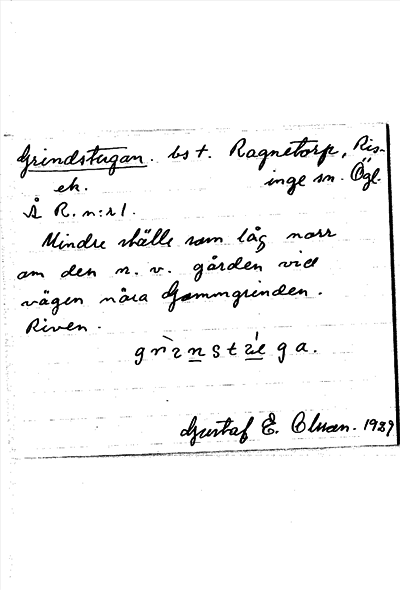 Grindstugan. bs t. Ragnetorp, Ris-
ek. inge sn. Ögl.
Å R. n:r 1.
Mindre ställe som låg norr
om den n. v. gården vid
vägen nära Gammgrinden.
Riven.
Gustaf E. 1929